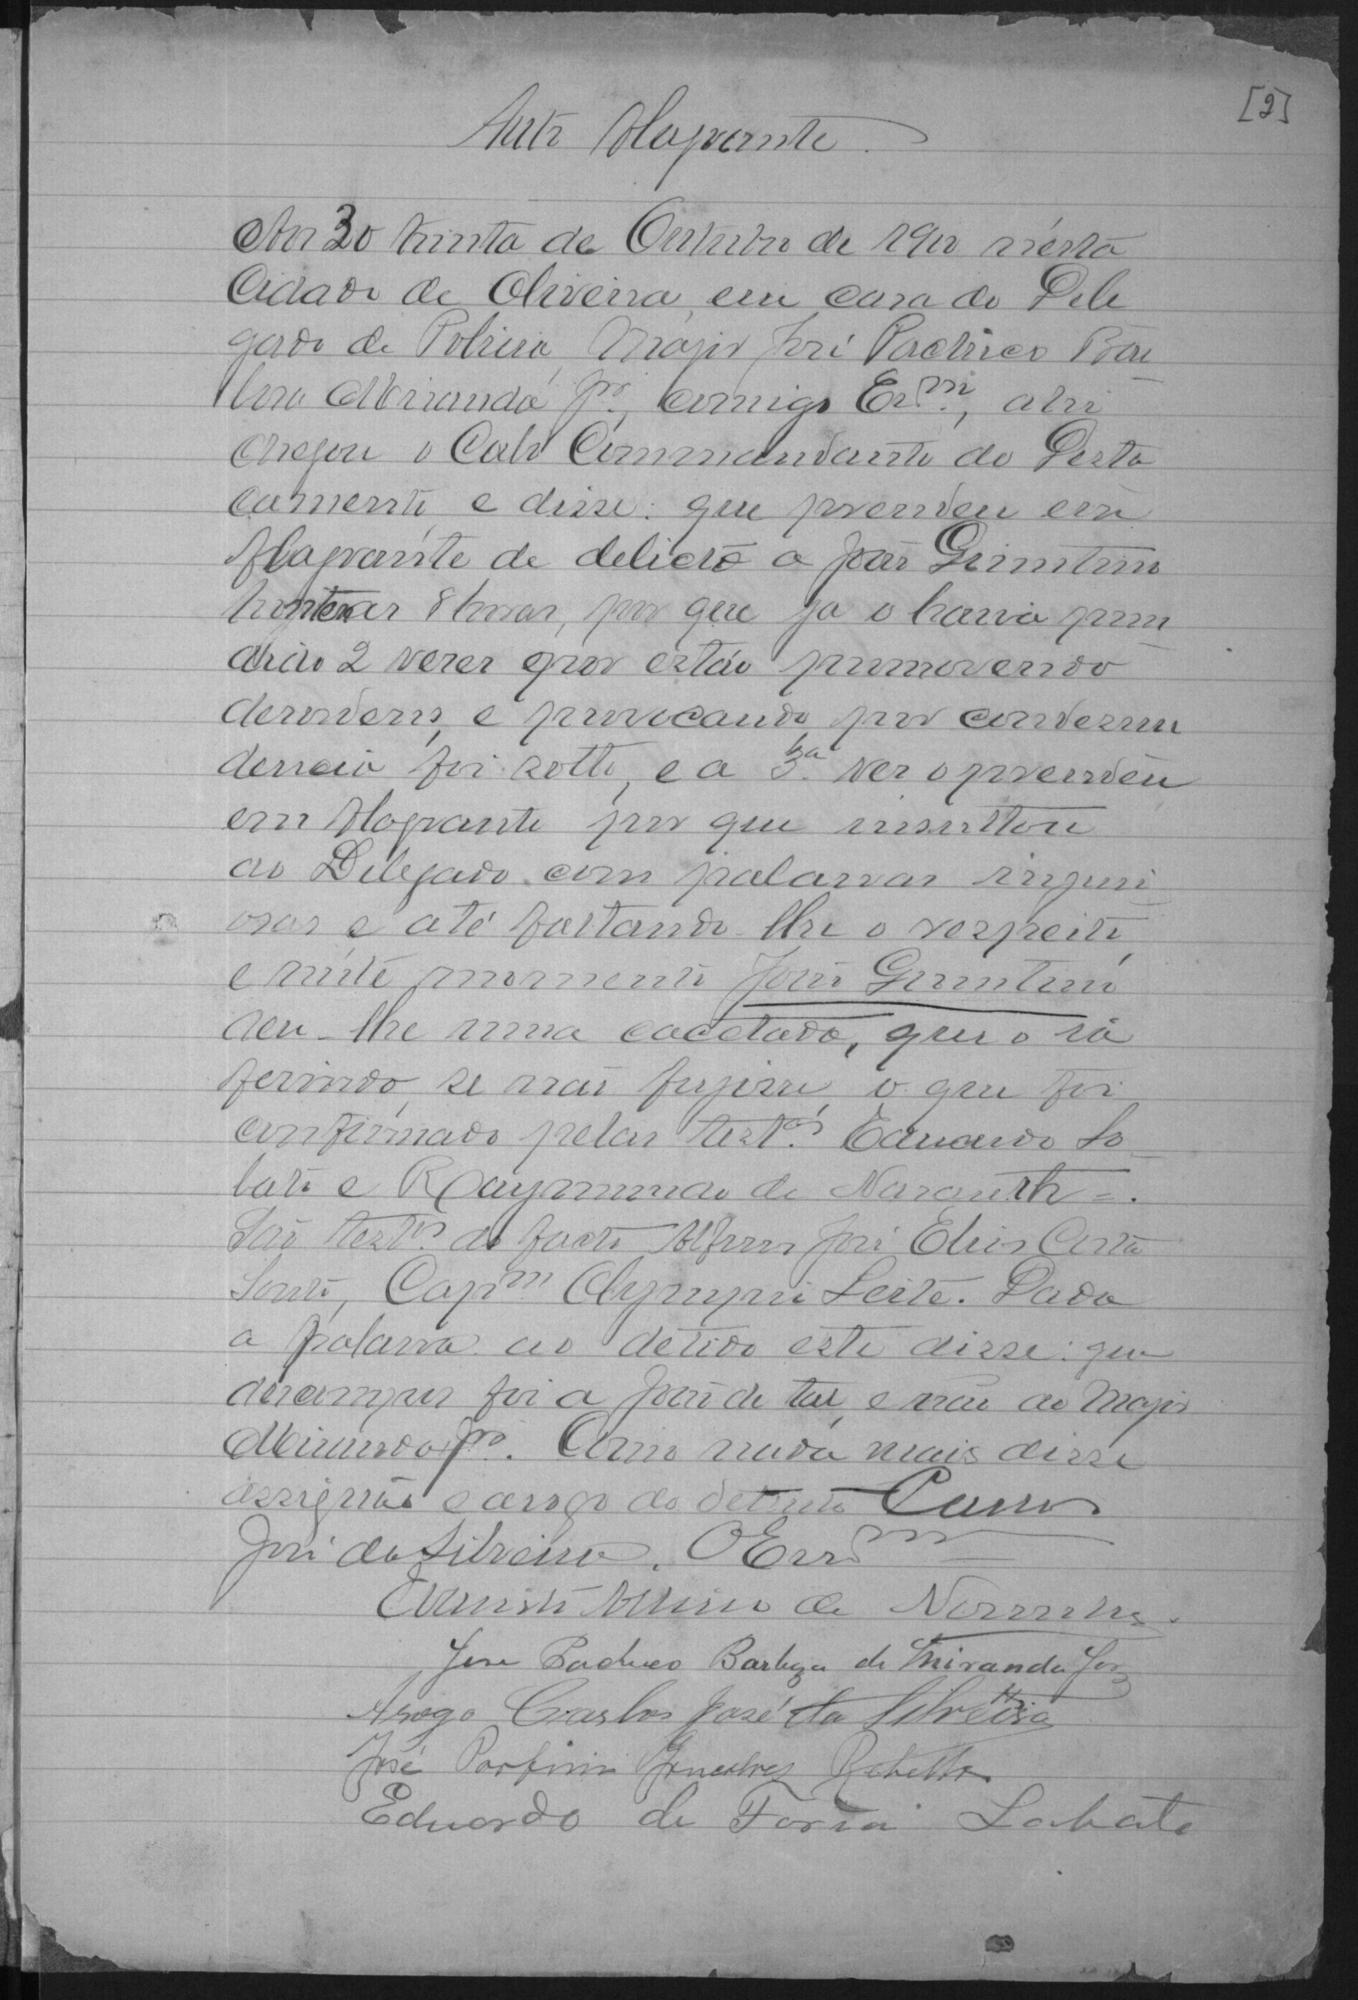 [2]
Auto flagrante.
Aos 30 trinta de Outubro de 1900 n'esta
Cidade de Oliveira, em casa do Dele
gado de Policia, Major José Pacheco Bar
bosa Miranda Jor., comigo Escm., ahi
chegou o Cabo Commandante do Desta
camento, e disse: que prendeu em
flagrante de delicto a João
8 horas, por que ja o havia pren
dido 2 vezes por estão promovendo
desordens, e provocando, por condescen
dencia foi solto, e a 3.a vez o prendeu
em flagrante por que insultou
ao Delegado com palavras injuri
osas e até faltando-lhe o respeito,
e n'este momento João
deu-lhe uma cacetada, que o ia
ferindo, se não fugisse, o que foi
confirmado pelas testas. Eduardo Lo
bato e Raymundo de Nazareth =.
São testas. do facto Alferes José Costa
Capm Olympio Leite. Dada
a palavra ao detido este disse: que
descompor foi a João de tal, e não ao Major
Miranda Jor. Como nada mais disse
assignão e arogo do detento Carlos
José da Silveira. O Escrm
de
Jose Pacheco Barboza de Miranda Jor
Arogo Carlos José da Silveira
José Porfirio Gonçalves Rebello
Eduardo de Faria Lobato